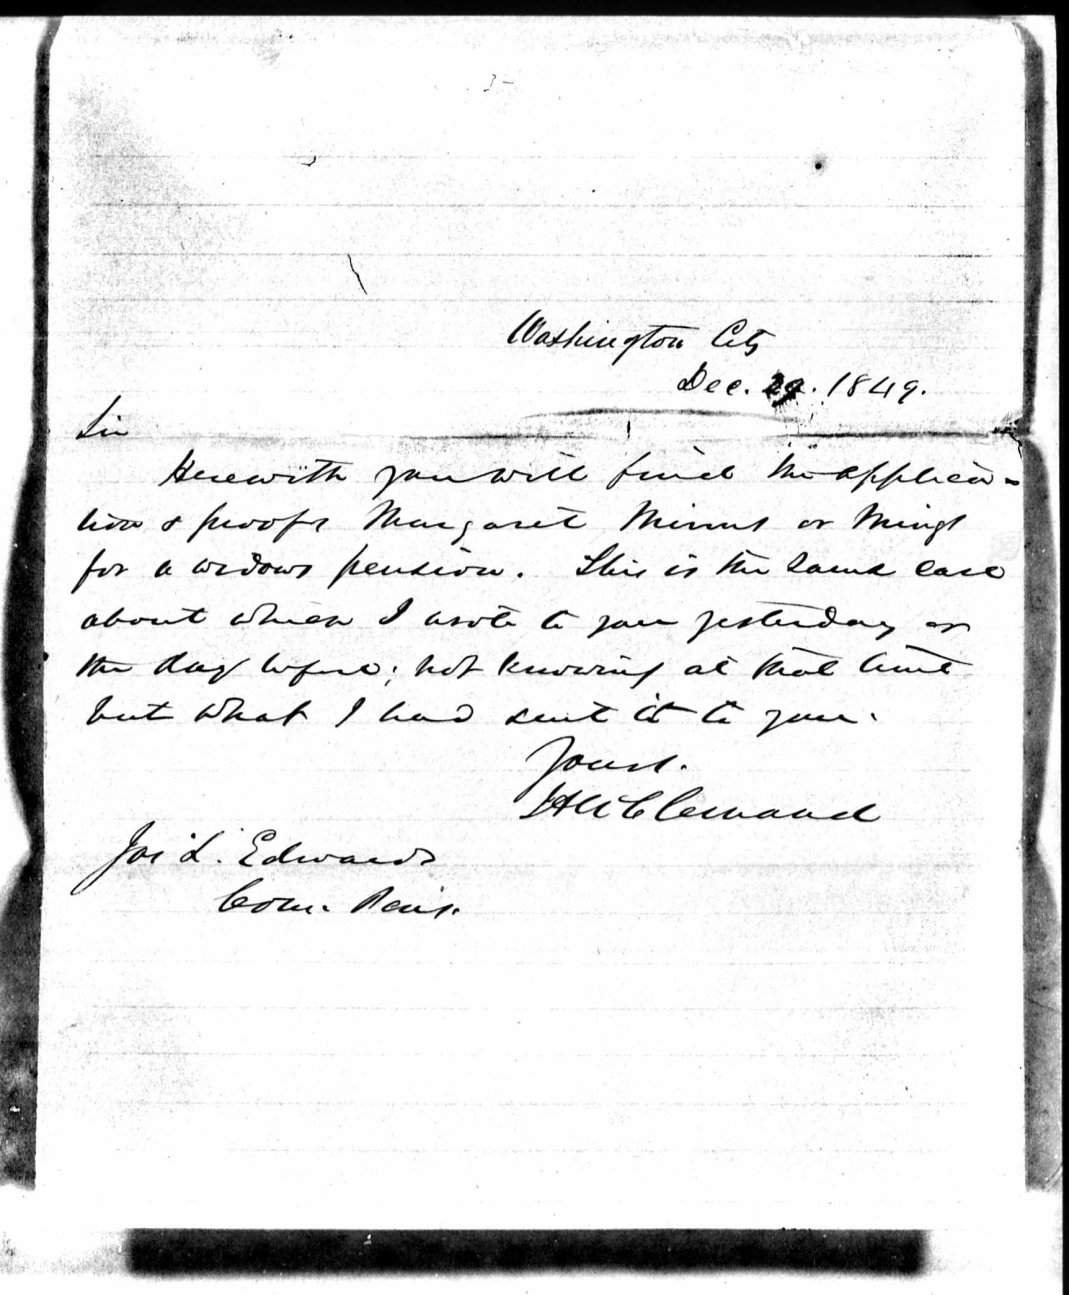 Washington City
Dec. 29. 1849.
Sir
Herewith you will find the applica-
tion & proofs Margaret Minns or Mings
for a widows pension. This is the same case
about which I wrote to you yesterday or
the day before; not knowing at that time
but what I had sent it to you.
Yours.
J A McClernand
Jas L. Edwards
Com. Pens.